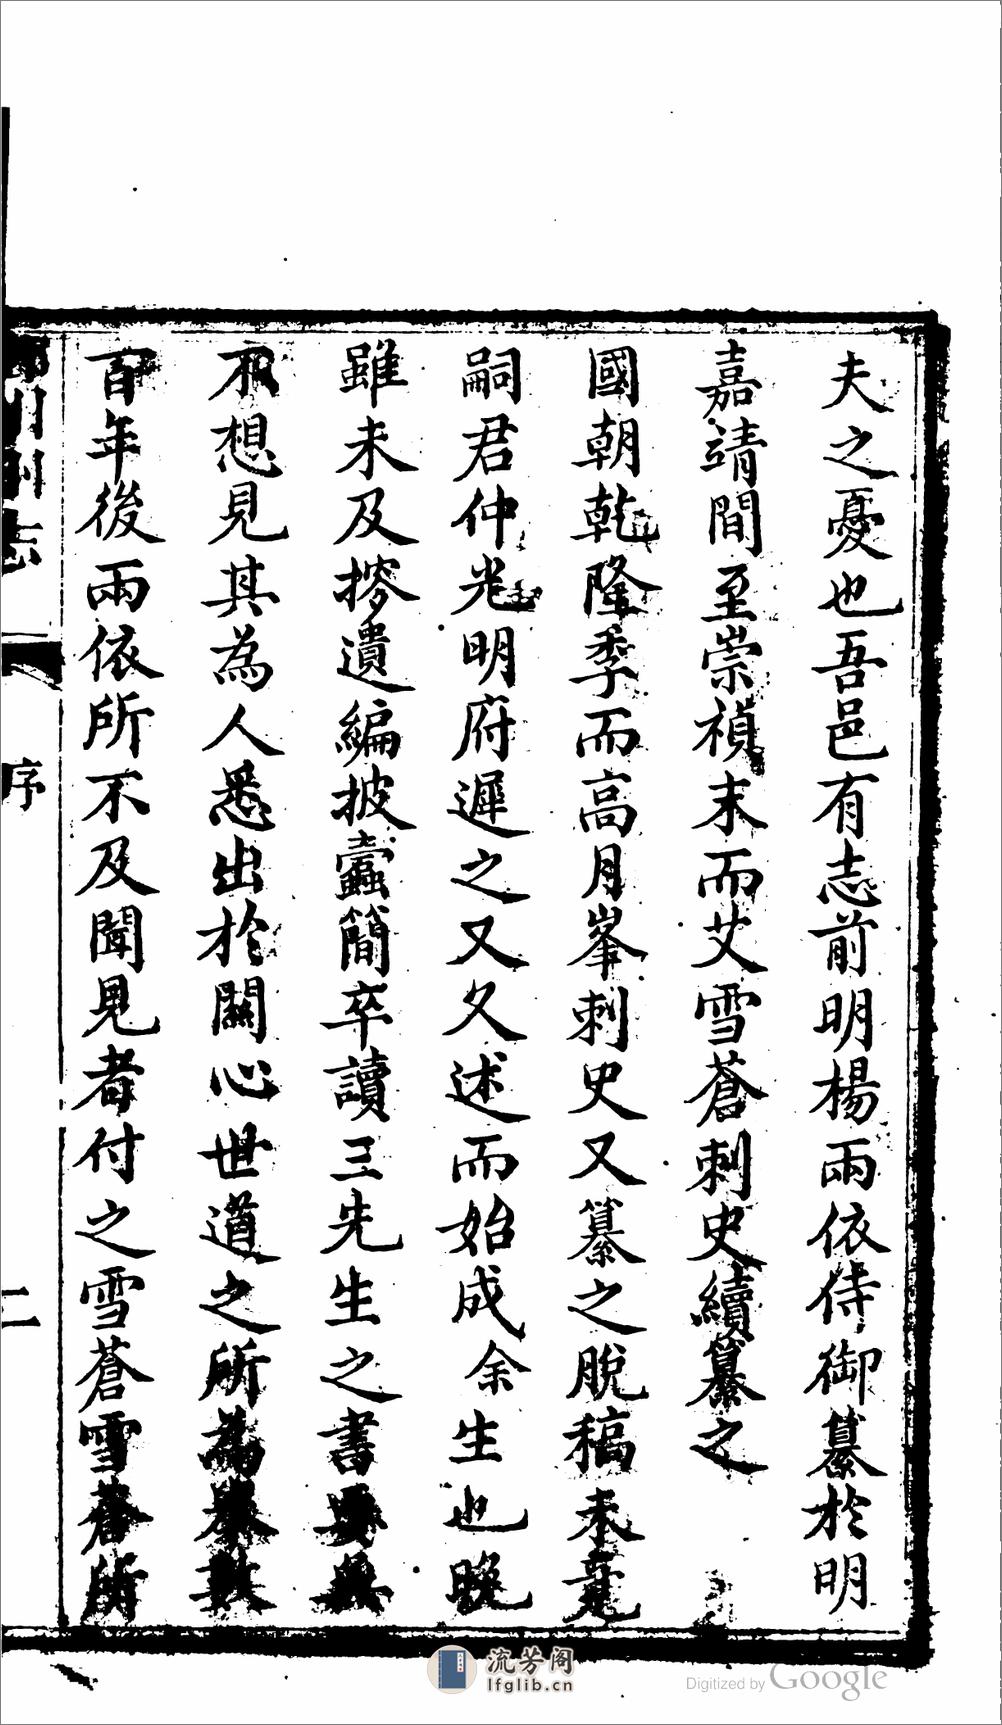 夫之憂也吾邑有志前明楊兩依侍御纂於明
嘉靖間至崇禎末而艾雪蒼刺史續纂之
國朝乾隆季而高月峯刺史又纂之脫稿未竟
嗣君仲光明府遲之又久述而始成余生也晚
雖未及摉遺編披蠹簡卒讀三先生之書
不想見其為人悉出於關心世道之所為舉數
百年後兩依所不及聞見者付之雪蒼雪蒼所
州志
序
二
流芳阁
lfglib.cn
Digitized by Google